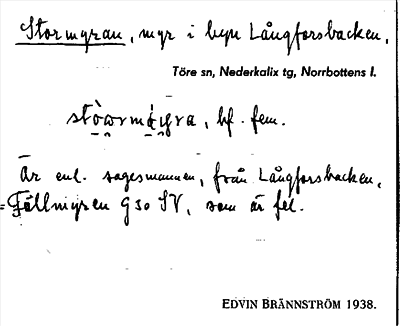 Stormyran, myr i byn Långforsbacken,
Töre sn, Nederkalix tg, Norrbottens l.
bf. fem.
Är enl. sagesmannen, från Långforsbacken,
= Fällmyren G 30 SV, som är fel.
EDVIN BRÄNNSTRÖM 1938.